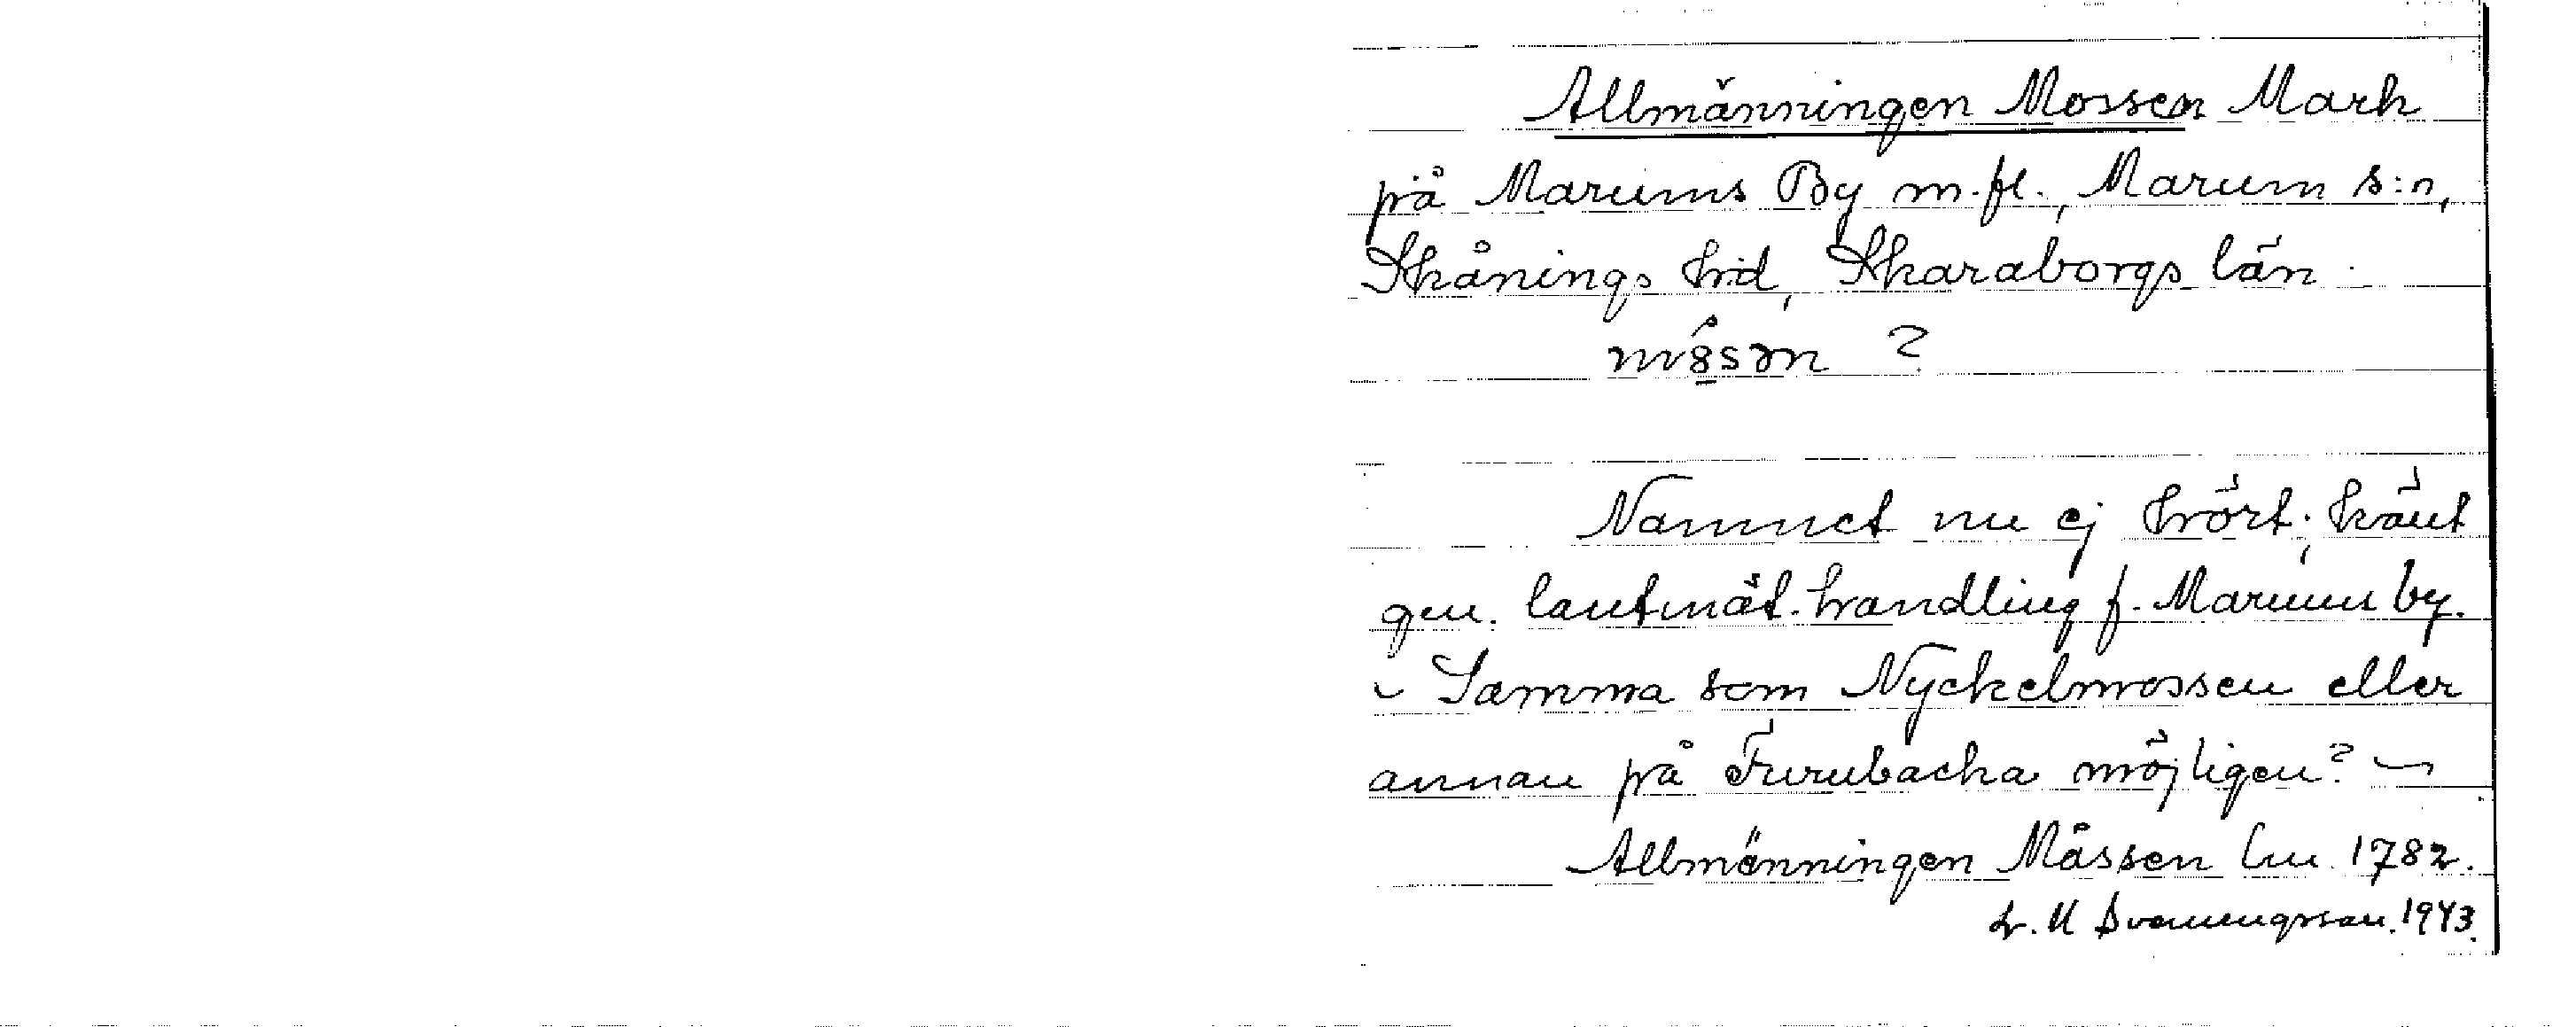 Allmänningen Mossen Mark
på Marums By m.fl., Marum s:n,
Skånings hd, Skaraborgs län.
?
Namnet nu ej hört; känt
gm. lantmät. handling f. Marum by.
– Samma som Nyckelmossen eller
annan på Furubacka möjligen? –
Allmänningen Måssen Lm 1782.
1943.